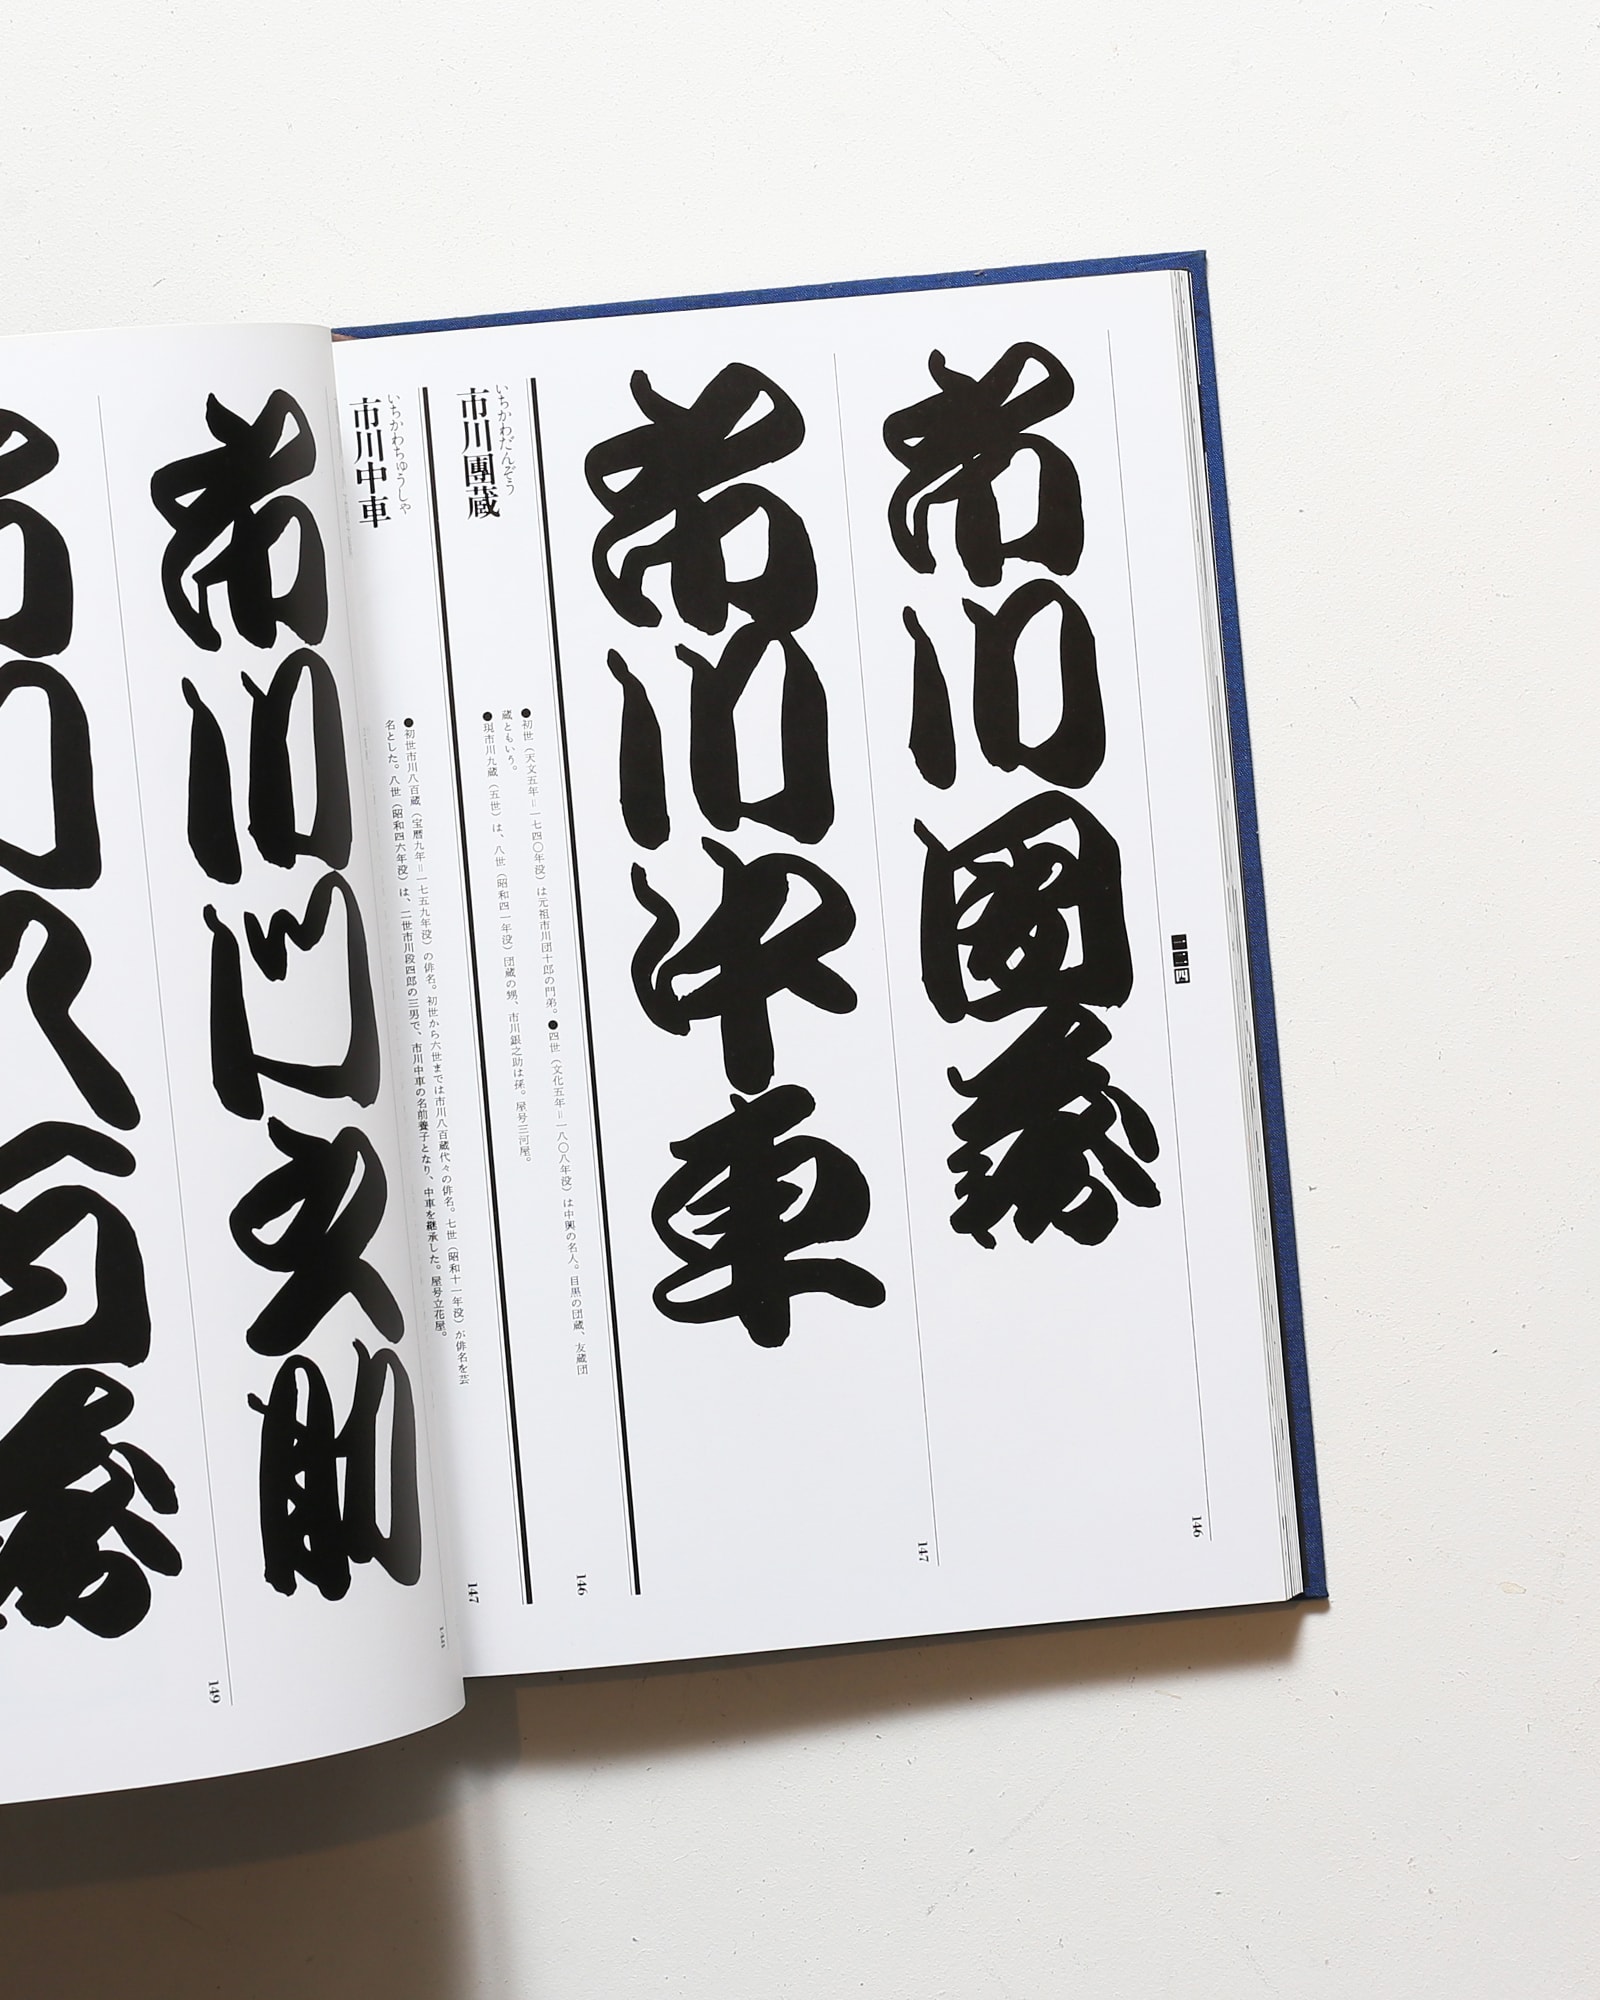 一二四
市川團蔵
146
市川中車
147
いちかわだんぞう
市川團蔵
●初世（天文五年＝一七四〇年没）は元祖市川団十郎の門弟。●四世（文化五年＝一八〇八年没）は中興の名人。目黒の団蔵、友蔵団
蔵ともいう。
●現市川九蔵（五世）は、八世（昭和四一年没）団蔵の甥、市川銀之助は孫。屋号三河屋。
146
いちかわちゅうしゃ
市川中車
●初世市川八百蔵（宝暦九年＝一七五九年没）の俳名。初世から六世までは市川八百蔵代々の俳名。七世（昭和十一年没）が俳名を芸
名とした。八世（昭和四六年没）は、二世市川段四郎の三男で、市川中車の名前養子となり、中車を継承した。屋号立花屋。
147
市川門之助
148
149